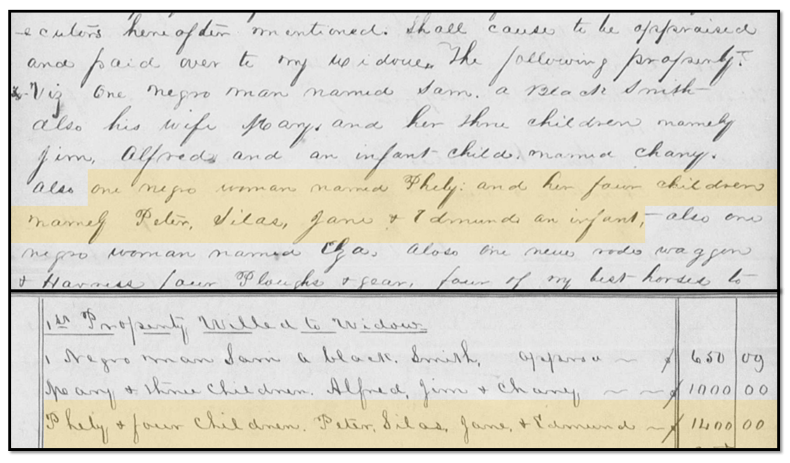 -ecutors hereafter mentioned. Shall cause to be appraised
and paid over to my widow. The following property.
Viz One negro man named Sam. a Black Smith
also his wife Mary, and her three children namely
Jim, Alfred, and an infant child. named Chany.
Also one negro woman named Phely: and her four children
namely Peter, Silas, Jane & Edmund an infant, - also one
negro woman named also one new road waggon
& Harness four Ploughs & gear, four of my best horses to
1st Property Willed to Widow
1 Negro man Sam a black. Smith, $ 650 00
Mary & three Children. Alfred, Jim & Chaney $ 1000 00
Phely & four Children. Peter, Silas, Jane, & Edmund $ 1400 00